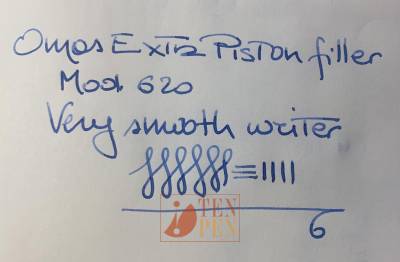 Omas Extra Piston filler
Mod 620
Very smooth writer
TEN
PEN
6